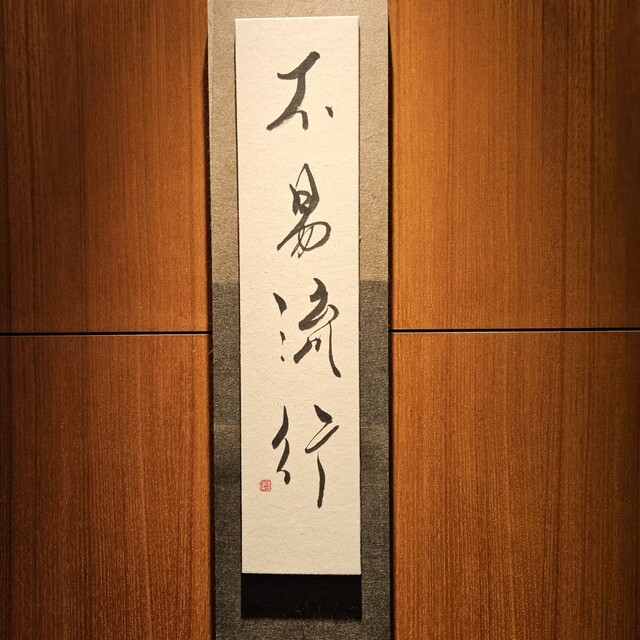 不易流行